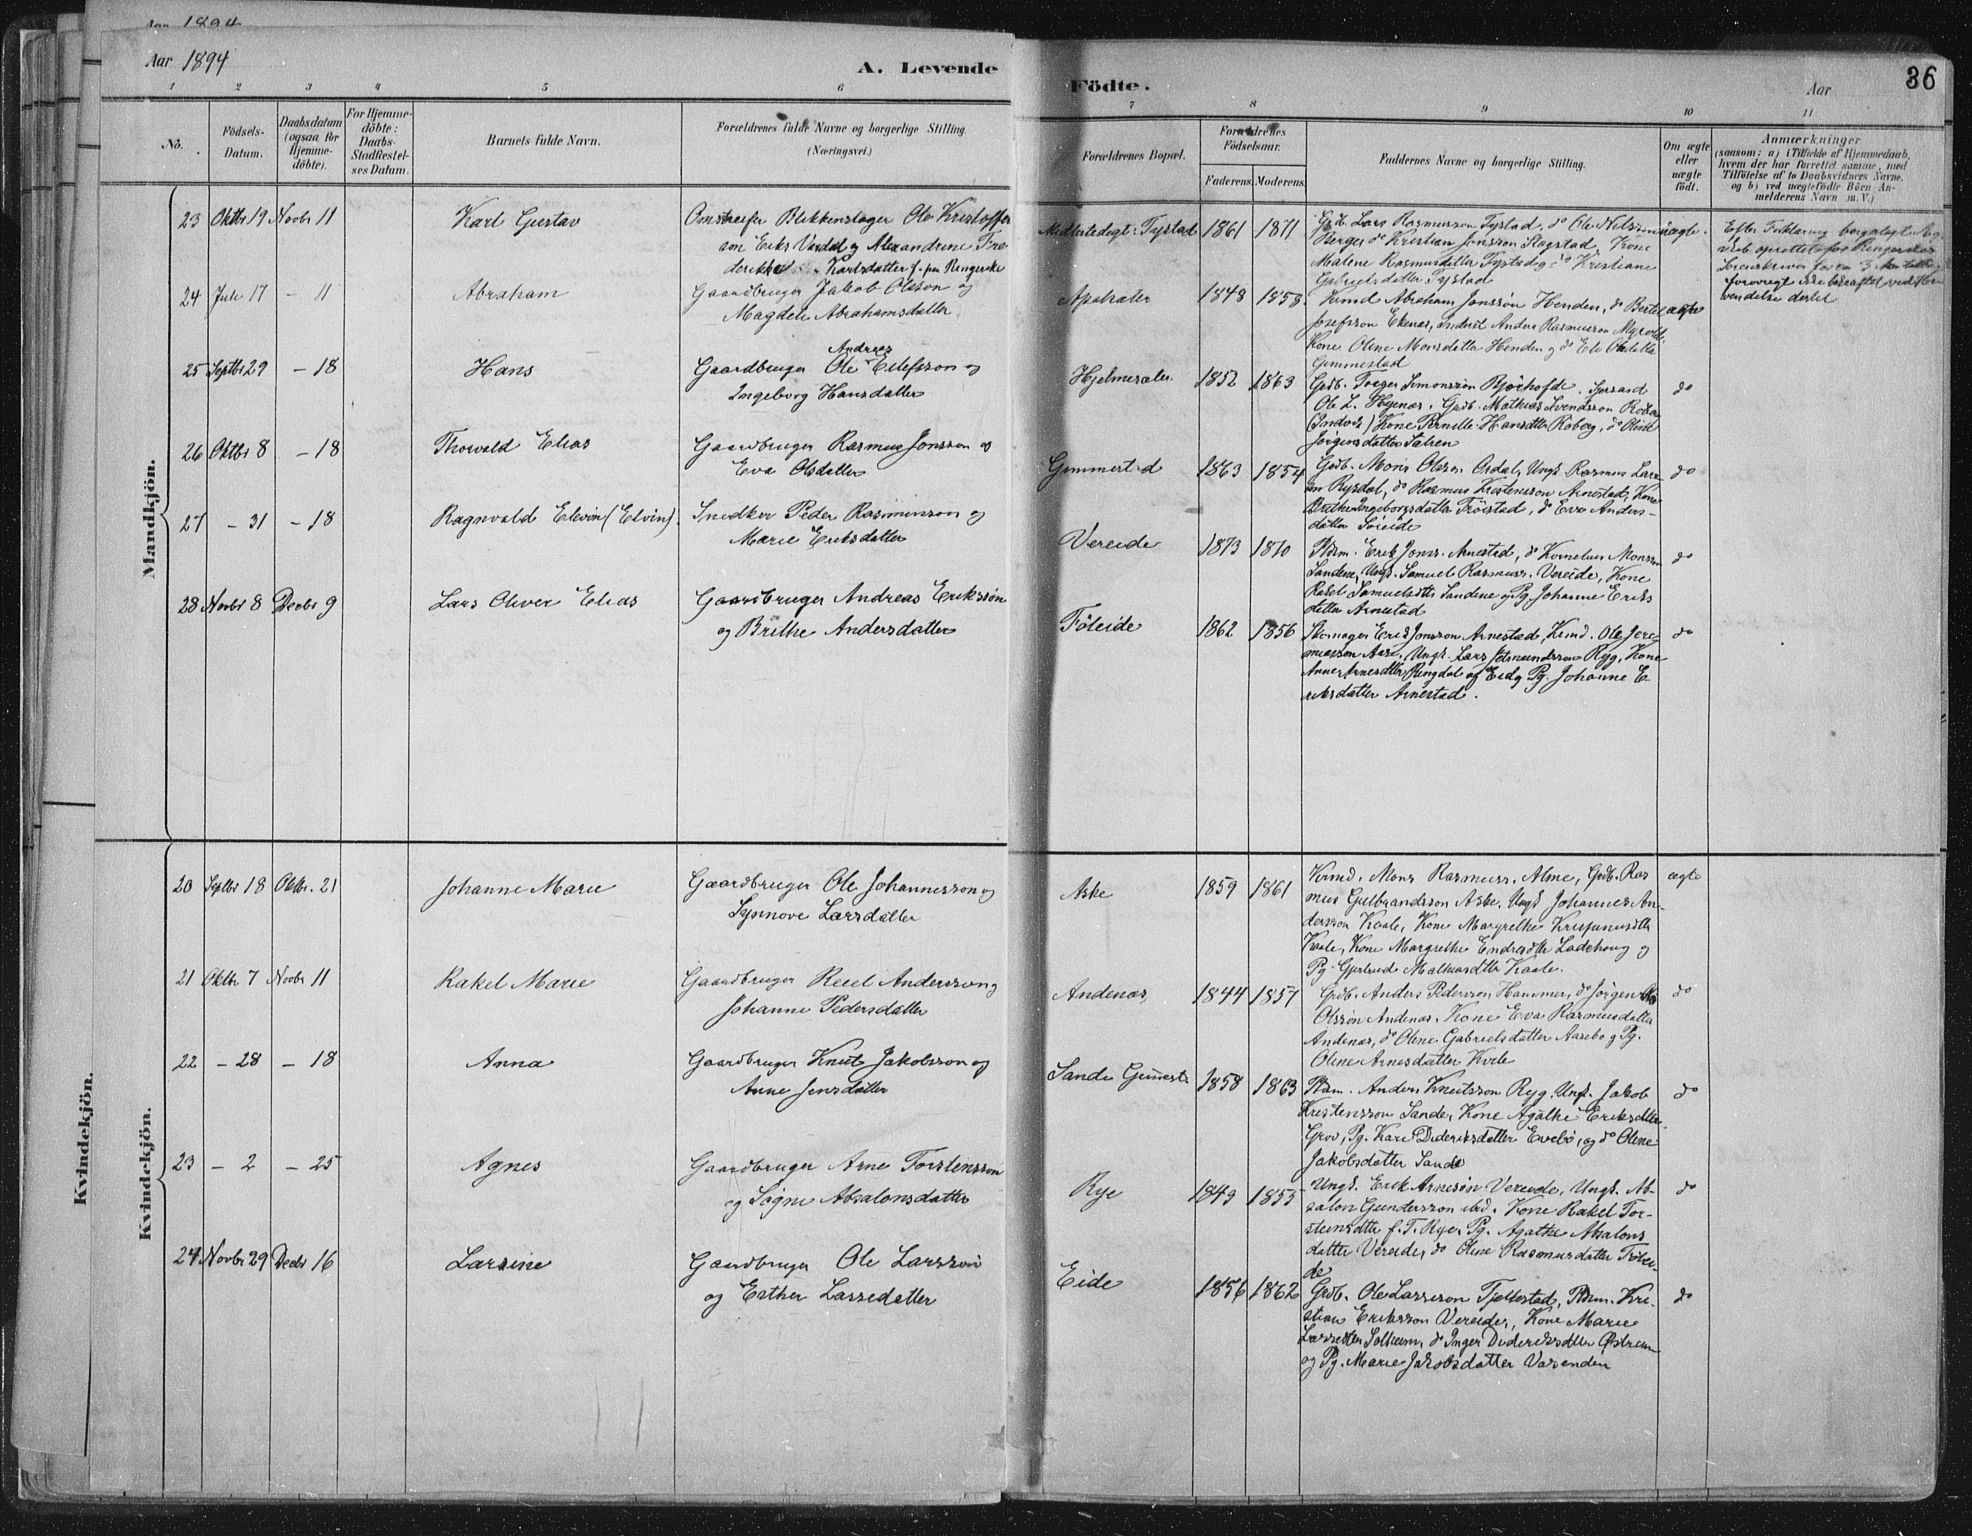 Aar 1894
A. Levende
Födte.
Aar
36
1 2 3 4 5 6 7 8 9 10 11
No.
Födsels-Datum.
Daabsdatum (ogsaa for Hjemme-döbte).
For Hjemme-döbte: Daabs-Stadfæstel-ses Datum.
Barnets fulde Navn.
Forældrenes fulde Navne og borgerlige Stilling.
(Næringsvei.)
Forældrenes Bopæl.
Forældrenes Födselsaar.
Faderens. Moderens.
Faddernes Navne og borgerlige Stilling.
Om ægte eller uægte födt.
Anmærkninger
(saasom: a) i Tilfælde af Hjemmedaab,
hvem der har forrettet samme, med
Tilföielse af to Daabsvidners Navne,
og b) ved uægtefödte Börn An-
melderens Navn m. V.)
Mandkjön.
23 Oktbr 19 Novbr 11 Karl Gustav
Omstreifer Blikkenslager Ole Kristoffer
son Eriks Vardal og Alexandrine Fre
derikke Karlsdatter f. paa Ringerike
Midlertidigt: Tystad 1861 1871
Grdb. Lars Rasmusson Tystad, do Ole Nilsson
Berge, do Kristian Jonsson Slagstad, Kone
Malene Rasmusdatter Tystad og do Kristiane
Gabrielsdatter Tystad
uægte.
Efter Forklaring borgerligt Ægte
skab oprettet for Ringerikes
Sorenskriver for ca 3
forøvrigt ikke bekræftet ved Hen
vendelse dertil
24 Juli 17 - 11 Abraham
Gaardbruger Jakob Olsson og
Magdeli Abrahamsdatter
Apalsæter 1848 1858.
Kmd Abraham Jonssön Henden, do Bertel
Josefsson Ekenæs, Inderst Anders Rasmusson Myrold,
Kone Oline Monsdatter Henden og do Eli Olsdatter
Gimmestad
ægte
25 Septbr 29 - 18 Hans
Gaardbruger Ole Andreas Ellefsson og
Ingeborg Hansdatter
Hjelmesæter 1852 1863
Grdb. Torger Simonssön Bjørhofde,
Ole L. Hyenæs, Grdb. Mathias Svendsson
(Indvik) Kone Pernille Hansdtr Roberg, do Oline
Jørgensdatter Sølsen
do
26 Oktbr 8 - 18 Thorvald Elias
Gaardbruger Rasmus Jonsson og
Eva Olsdatter
Gimmestad 1863 1854
Grdb. Mons Olsson Osdal, Ungk. Rasmus Lars
son Rysdal, do Rasmus Kristensson Arnestad, Kone
Brithe Ingeborgsdatter Tröistad, do Eva Anders-
datter Søreide
do
27 - 31 - 18 Ragnvald Elevin (Elvin).
Snedker Peder Rasmusson og
Marie Eriksdatter
Vereide 1873 1870
Pldsm. Erik Jonss. Arnestad, do Kornelius Monsson
Sandene, Ungk. Samuel Rasmuss. Vereide, Kone
Rakel Samuelsdtr Sandene og Pg. Johanne Eriks
datter Arnestad
do
28 Novbr 8 Decbr 9 Lars Oliver Elias
Gaardbruger Andreas Erikssön
og Brithe Andersdatter
Föleide 1862 1856
Skomager Erik Jonsson Arnestad, Kmd. Ole Jere-
miasson Aase, Ungk. Lars Edmundsson Ryg, Kone
Anne Arnesdtr Ringdal af Eid og Pg. Johanne E
riksdatter Arnestad.
do
Kvindekjön.
Kvindekjön.
20 Septbr 18 Oktbr. 21 Johanne Marie
Gaardbruger Ole Johannesson og
Synnove Larsdatter
Aske 1859 1861
Kmd. Mons Rasmuss. Alme, Grdb. Ras
mus Gulbrandsson Aske, Ungk Johannes An-
dersson Kaale, Kone Margrethe
Kaale, Kone Margrethe Endresdtr Ladehaug og
Pg. Gjertrud Mathiasdtr Kaale.
ægte
21 Oktbr 7 Novbr 11 Rakel Marie
Gaardbruger Reiel Andersson og
Johanne Pedersdatter
Andenæs 1844 1857
Grdb. Anders Pedersson Hammer, do Jörgen
Olsson Andenæs, Kone Eva Rasmusdatter
Andenæs, do Oline Gabrielsdatter Aasebø og Pg.
Oline Arnesdatter Kvile
do
22 - 28 - 18 Anna
Gaardbruger Knut Jakobsson og
Anne Jensdatter
Sande Gimest. 1858 1863
Pldsm. Anders Knutsson Ryg, Ungk. Jakob
Kristensson Sande, Kone Agathe Eriksdatter
Grov, Pg. Kari Dideriksdatter Evebø, og do Oline
Jakobsdatter Sande
do
23 - 2 - 25 Agnes
Gaardbruger Arne Torstensson
og Signe Absalonsdatter
Rye 1849 1855
Ungk. Erik Arnesön Vereide, Ungk. Ab-
salon Gundersson ibid. Kone Rakel Tor-
steinsdtr f. T. Rye, Pg. Agathe Absalons
datter Vereide, do Oline Rasmusdatter Tölei-
de
do
24 Novbr 29 Decbr 16 Larsine
Gaardbruger Ole Larssön
og Esther Lassedatter
Eide 1856 1862
Grdb. Ole Larsson Tjellestad, Pldsm. Kri-
stian Eriksson Vereide, Kone Marie
Lassedtr Solheim, do Inger Dideriksdtr Östrem
og Pg. Marie Jakobsdatter Vasenden
do